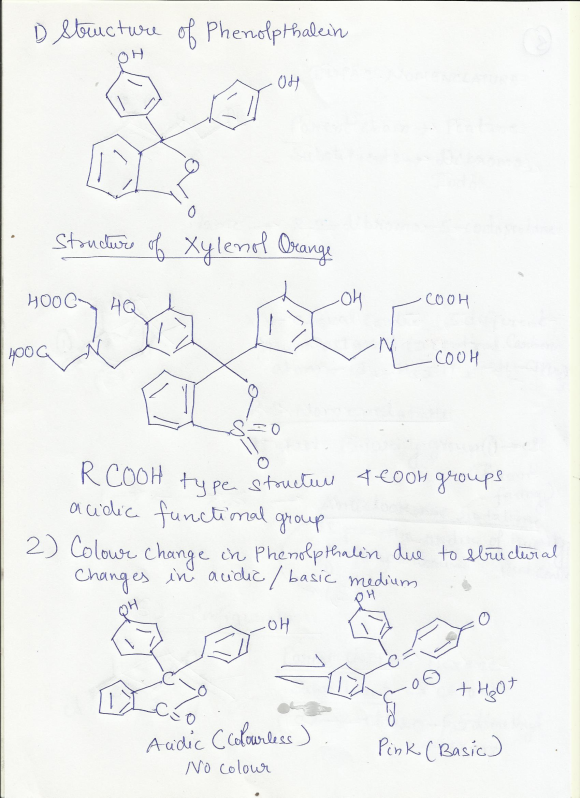 1) Structure of Phenolpthalein
OH
OH
O
O
Structure of Xylenol Orange
HOOC
HO
OH
COOH
HOOC
N
N
COOH
O
S=O
O
RCOOH type structure 4-COOH groups
acidic functional group
2) Colour change in Phenolpthalin due to structural
changes in acidic/basic medium
OH
OH
OH
O
C
O
C
O
C
C
O⊖
O
+ H3O+
Acidic (Colourless)
Pink (Basic)
No colour